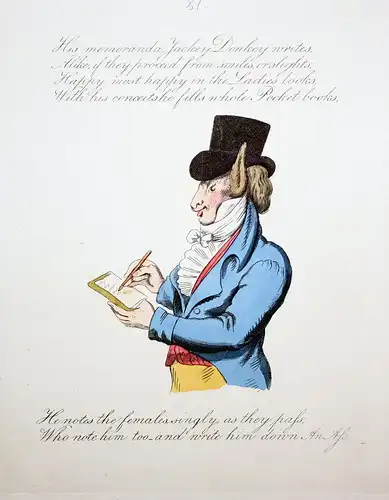 51.
His memoranda, Jackey Donkey writes,
Alike, if they proceed from smiles, or slights,
Happy most happy in the Ladies looks,
With his conceits he fills whole Pocket books,
He notes the females singly as they paſs,
Who note him too_and write him down An Aſs